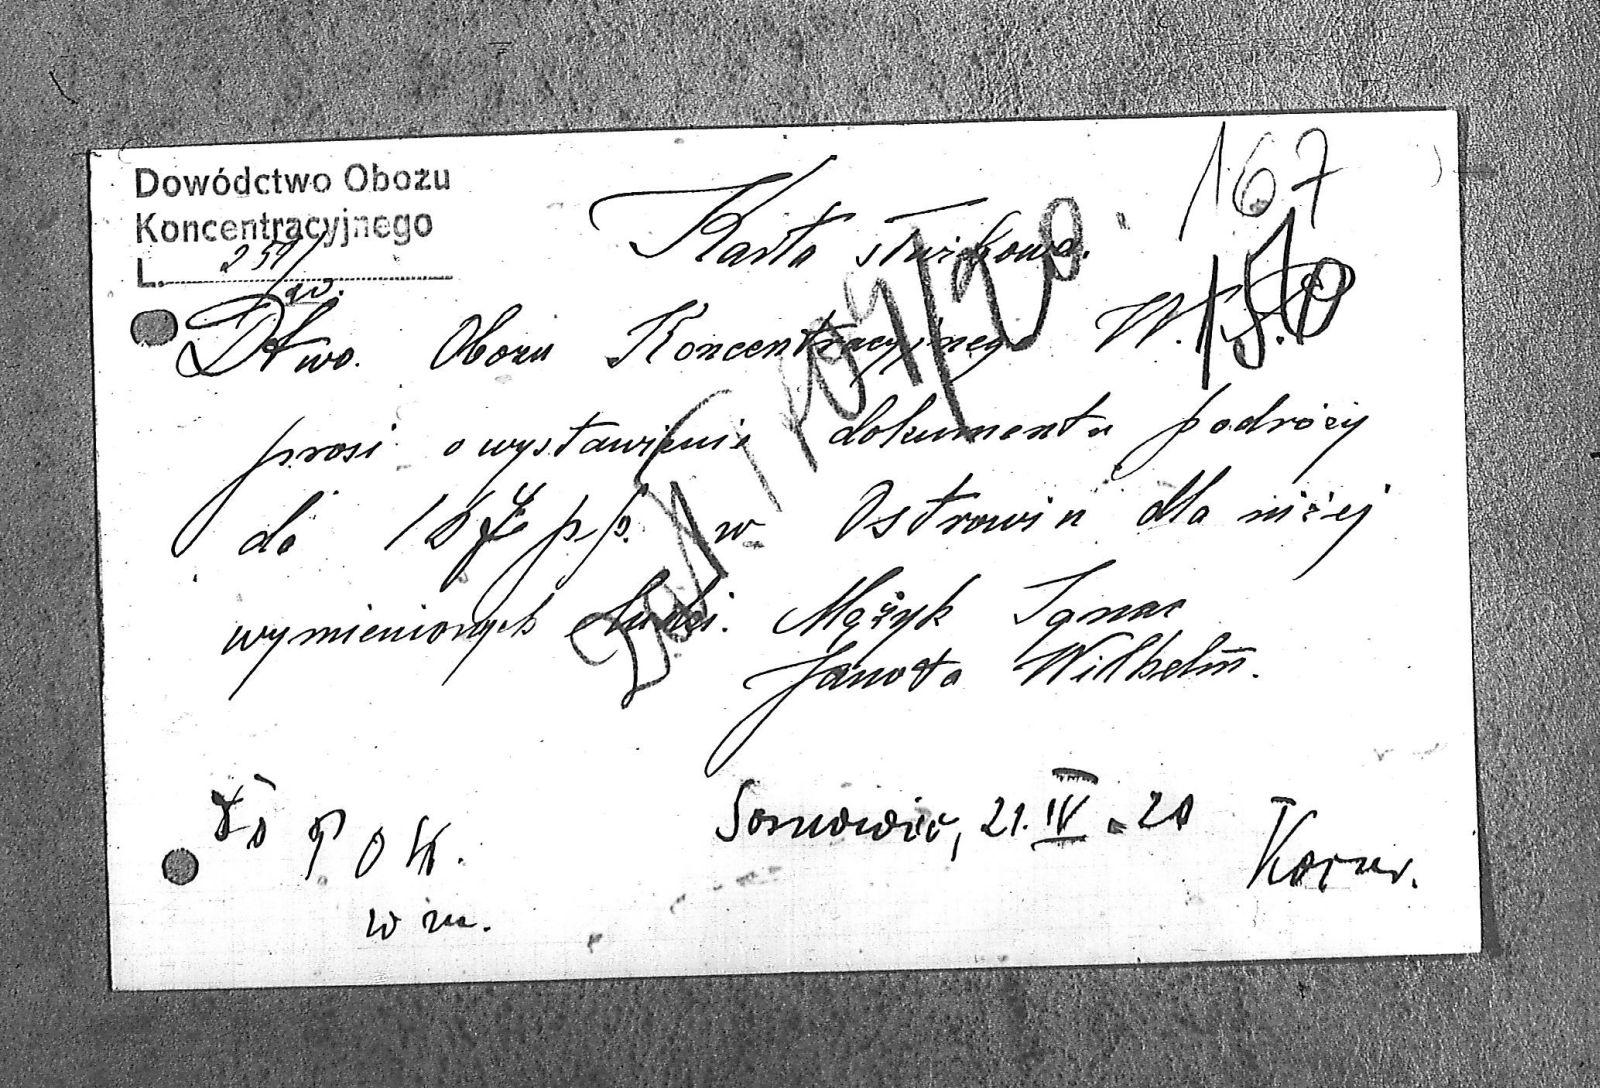 167
Dowództwo Obozu
Koncentracyjnego
L. 259/20.
Karta służbowa.
Dtwo. Obozu Koncentracyjnego W.
prosi o wystawienie dokumentu podróży
do 167 p.p. w Ostrowiu dla niżej
wymienionych ludzi. Mężyk Ignac
Janota Wilhelm.
Do P O W.
w m.
Sosnowiec, 21. IV. 20